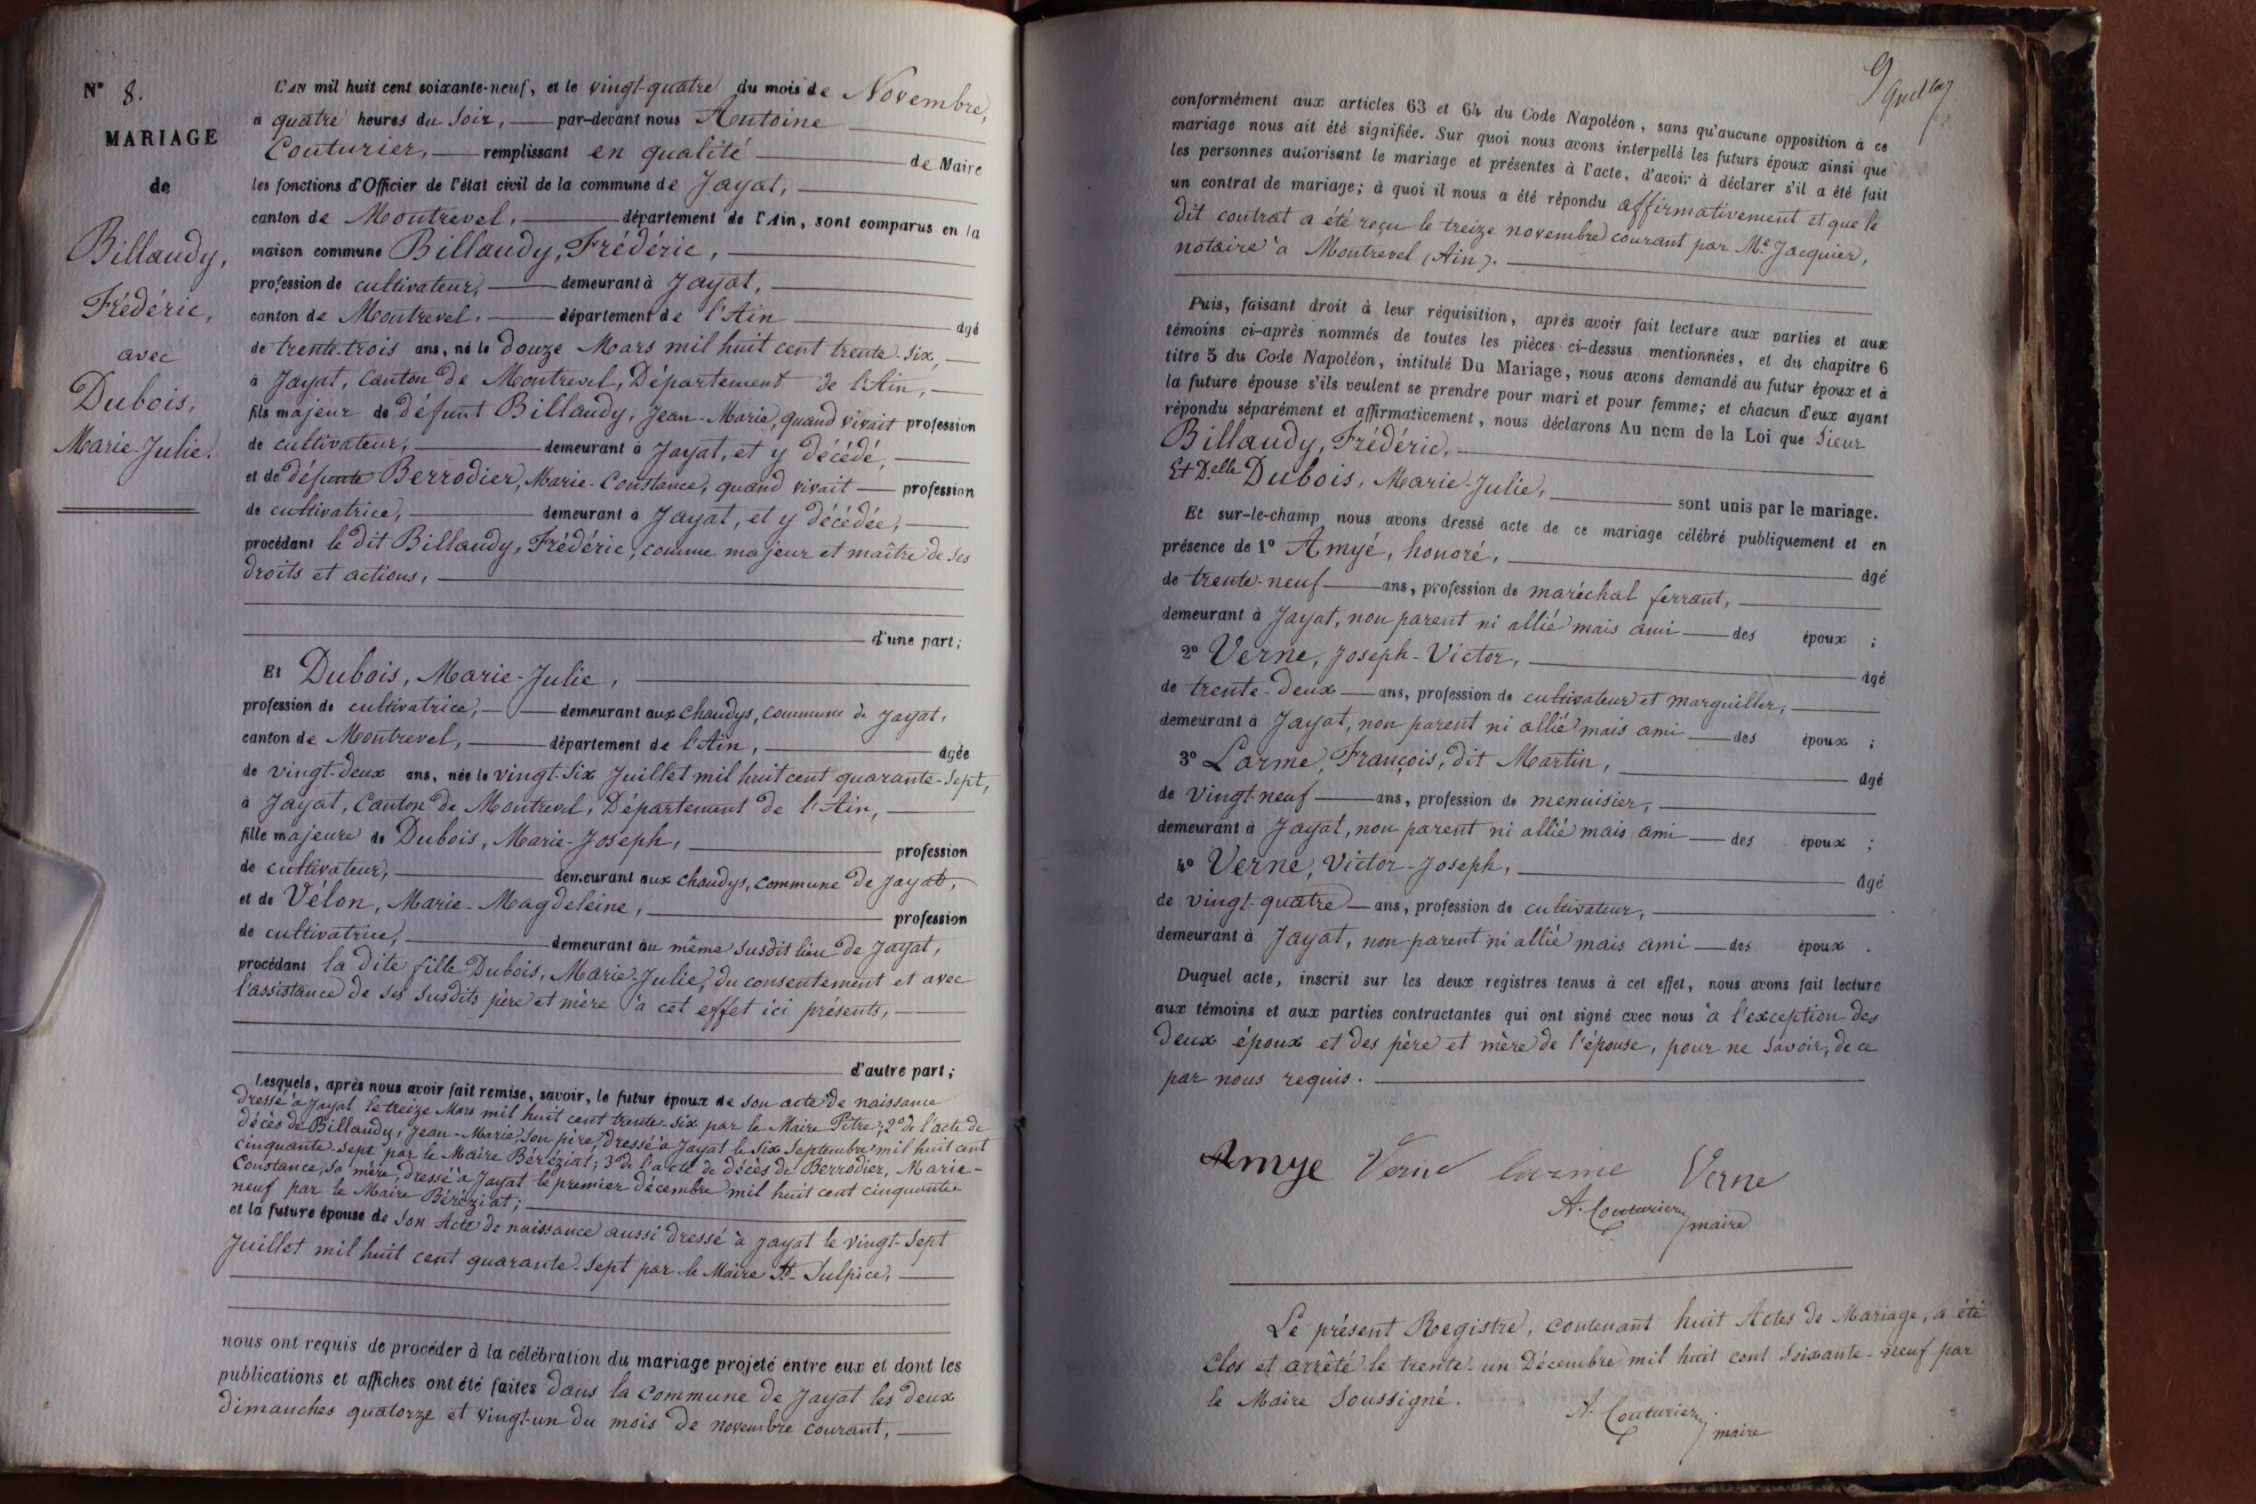 N° 8.
MARIAGE
de
Billaudy,
Frédéric,
avec
Dubois,
Marie-Julie.
L'AN mil huit cent soixante-neuf, et le vingt-quatre du mois de Novembre,
à quatre heures du Soir, par-devant nous Antoine
Couturier, remplissant en qualité de Maire
les fonctions d'Officier de l'état civil de la commune de Jayat,
canton de Montrevel, département de l'Ain, sont comparus en la
maison commune Billaudy, Frédéric,
profession de cultivateur, demeurant à Jayat,
canton de Montrevel, département de l'Ain âgé
de trente-trois ans, né le douze Mars mil huit cent trente-six,
à Jayat, Canton de Montrevel, Département de l'Ain,
fils majeur de défunt Billaudy, Jean-Marie, quand vivait profession
de cultivateur, demeurant à Jayat, et y décédé,
et de défunte Berrodier, Marie-Constance, quand vivait profession
de cultivatrice, demeurant à Jayat, et y décédée,
procédant le dit Billaudy, Frédéric, comme majeur et maître de ses
droits et actions,
d'une part;
Et Dubois, Marie-Julie,
profession de cultivatrice, demeurant aux Chaudys, commune de Jayat,
canton de Montrevel, département de l'Ain, âgée
de vingt-deux ans, née le vingt-six Juillet mil huit cent quarante-sept,
à Jayat, Canton de Montrevel, Département de l'Ain,
fille majeure de Dubois, Marie-Joseph, profession
de cultivateur, demeurant aux Chaudys, commune de Jayat,
et de Vélon, Marie-Magdeleine, profession
de cultivatrice, demeurant au même susdit lieu de Jayat,
procédant la dite fille Dubois, Marie-Julie, du consentement et avec
l'assistance de ses susdits père et mère à cet effet ici présents,
d'autre part;
Lesquels, après nous avoir fait remise, savoir, le futur époux de son acte de naissance
dressé à Jayat le treize Mars mil huit cent trente-six par le Maire Pitre; 2° de l'acte de
décès de Billaudy, Jean-Marie, son père, dressé à Jayat le six Septembre mil huit cent
cinquante-sept par le Maire Béréziat; 3° de l'acte de décès de Berrodier, Marie-
Constance, sa mère, dressé à Jayat le premier décembre mil huit cent cinquante-
neuf par le Maire Béréziat;
et la future épouse de son Acte de naissance aussi dressé à Jayat le vingt-sept
Juillet mil huit cent quarante-sept par le Maire St-Sulpice,
nous ont requis de procéder à la célébration du mariage projeté entre eux et dont les
publications et affiches ont été faites dans la commune de Jayat les deux
dimanches quatorze et vingt-un du mois de novembre courant,
9
conformément aux articles 63 et 64 du Code Napoléon, sans qu'aucune opposition à ce
mariage nous ait été signifiée. Sur quoi nous avons interpellé les futurs époux ainsi que
les personnes autorisant le mariage et présentes à l'acte, d'avoir à déclarer s'il a été fait
un contrat de mariage; à quoi il nous a été répondu affirmativement et que le
dit contrat a été reçu le treize novembre courant par Me. Jacquier,
notaire à Montrevel (Ain).
Puis, faisant droit à leur réquisition, après avoir fait lecture aux parties et aux
témoins ci-après nommés de toutes les pièces ci-dessus mentionnées, et du chapitre 6
titre 5 du Code Napoléon, intitulé Du Mariage, nous avons demandé au futur époux et à
la future épouse s'ils veulent se prendre pour mari et pour femme; et chacun d'eux ayant
répondu séparément et affirmativement, nous déclarons Au nom de la Loi que Sieur
Billaudy, Frédéric,
Et Delle Dubois, Marie-Julie, sont unis par le mariage.
Et sur-le-champ nous avons dressé acte de ce mariage célébré publiquement et en
présence de 1° Amyé, honoré, âgé
de trente-neuf ans, profession de maréchal ferrant,
demeurant à Jayat, non parent ni allié mais ami des époux ;
2° Verne, Joseph-Victor, âgé
de trente-deux ans, profession de cultivateur et marguiller,
demeurant à Jayat, non parent ni allié mais ami des époux ;
3° Larme, François, dit Martin, âgé
de vingt-neuf ans, profession de menuisier,
demeurant à Jayat, non parent ni allié mais ami des époux ;
4° Verne, Victor-Joseph, âgé
de vingt-quatre ans, profession de cultivateur,
demeurant à Jayat, non parent ni allié mais ami des époux .
Duquel acte, inscrit sur les deux registres tenus à cet effet, nous avons fait lecture
aux témoins et aux parties contractantes qui ont signé avec nous à l'exception des
deux époux et des père et mère de l'épouse, pour ne savoir, de ce
par nous requis.
Amye Verne larme Verne
A. Couturier, maire
Le présent Registre, contenant huit Actes de Mariage, a été
clos et arrêté le trente-un Décembre mil huit cent soixante-neuf par
le Maire Soussigné.
A. Couturier, maire